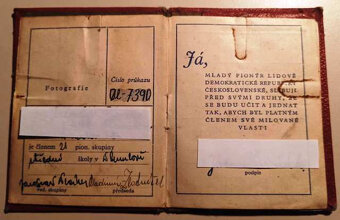 Fotografie
Číslo průkazu
je členem 21 pion. skupiny
školy v
ved. skupiny
předseda
Já,
MLADÝ PIONÝR LIDOVĚ
DEMOKRATICKÉ REPUBLIKY
ČESKOSLOVENSKÉ, SLIBUJI
PŘED SVÝMI DRUHY, ŽE
SE BUDU UČIT A JEDNAT
TAK, ABYCH BYL PLATNÝM
ČLENEM SVÉ MILOVANÉ
VLASTI
podpis